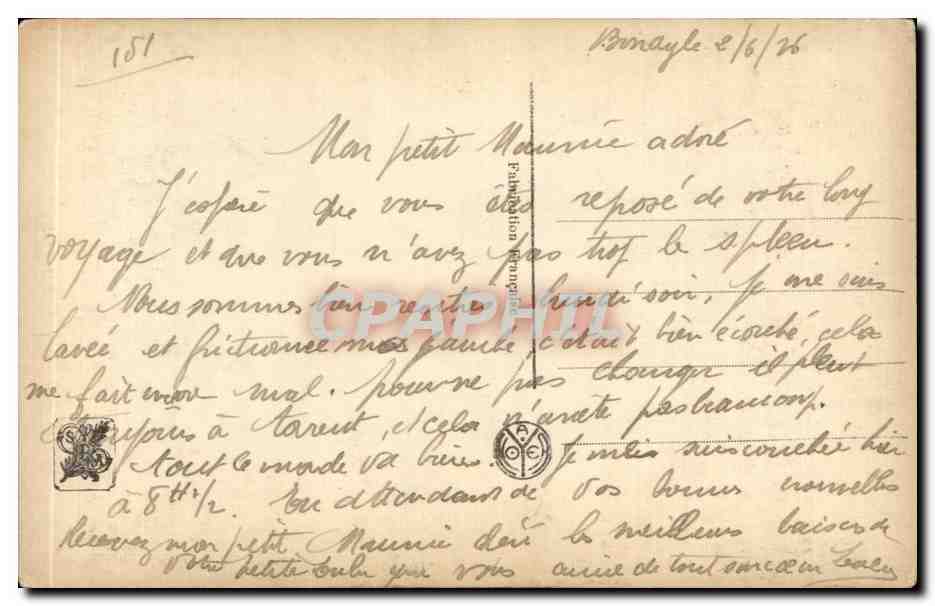 151
2/6/26
Mon petit Maurice adoré
J'espère que vous êtes reposé de votre long
voyage et que vous n'avez pas trop le spleen.
Nous sommes bien rentrés lundi soir, je me suis
lavée et frictionnée, c'était bien écorché, cela
me fait mal. pour ne pas changer il pleut
toujours à torrent, et cela n'arrête pas
tout le monde va bien. Je me suis couchée hier
à 8 H 1/2. En attendant de vos bonnes nouvelles
Recevez mon petit Maurice les meilleurs baisers de
votre petite qui vous aime de tout son cœur
Fabrication Française
CPAPHIL